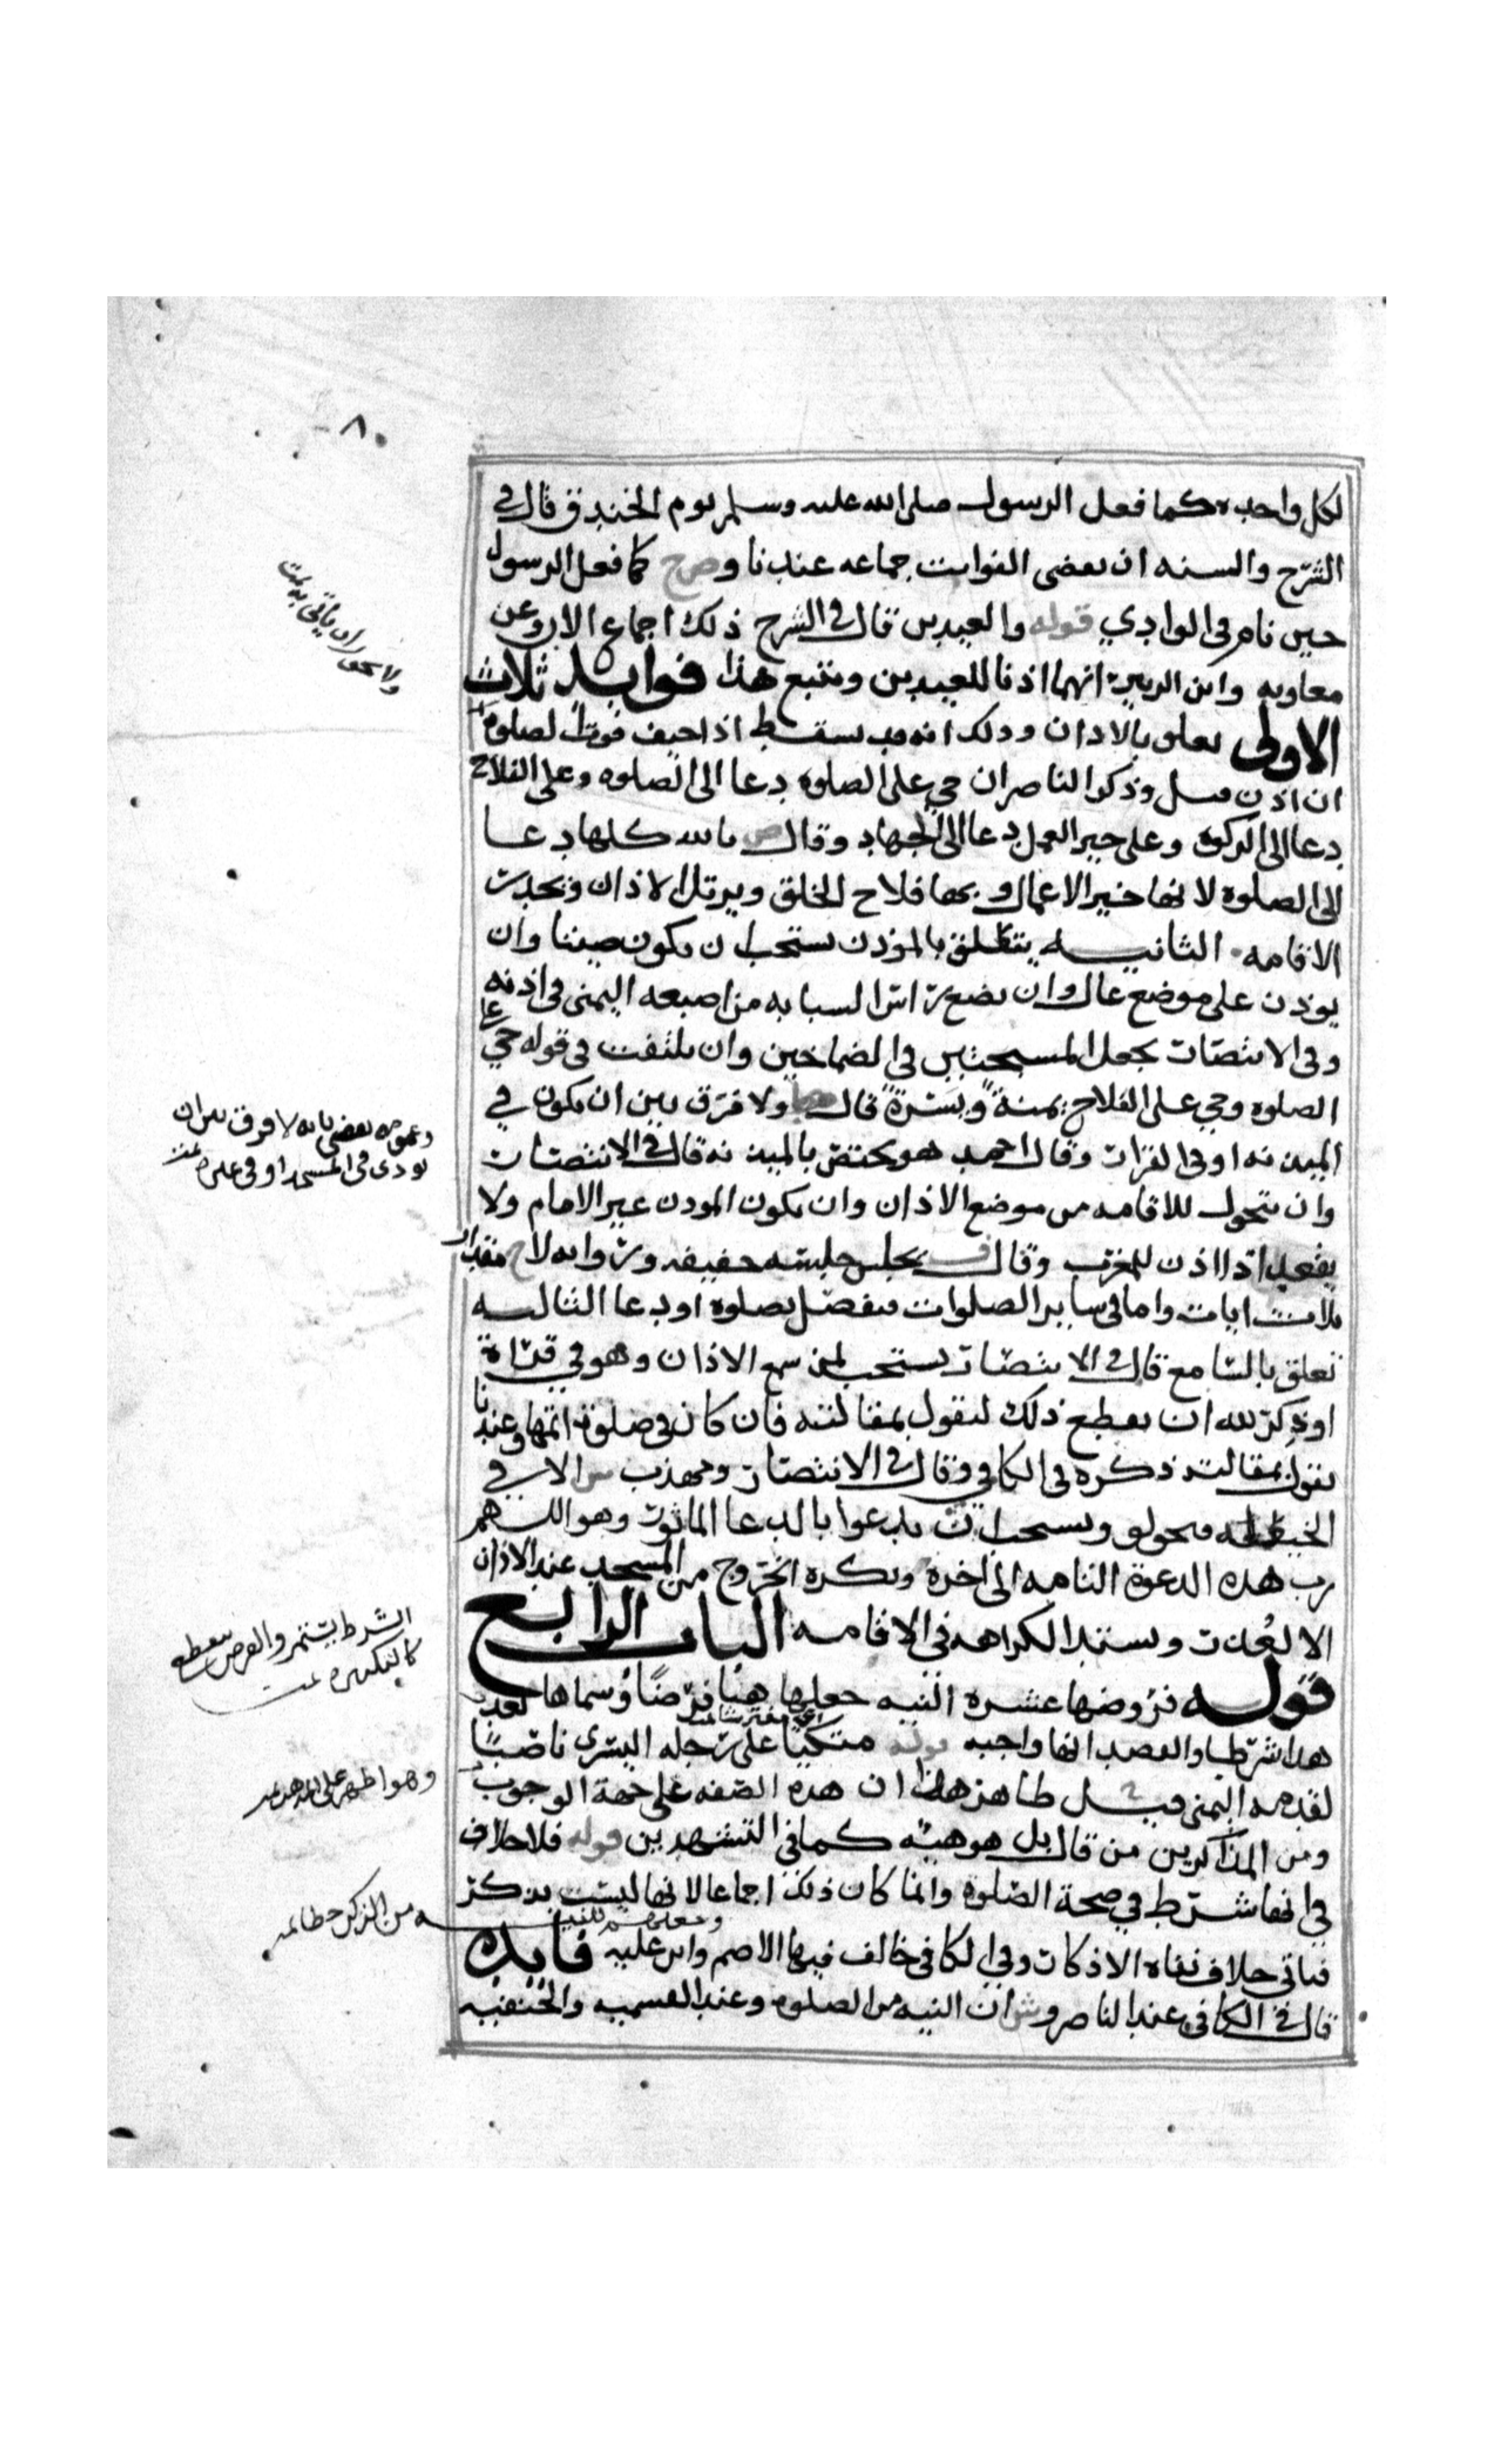 ٨٠
لكل واحده كما فعل الرسول صلى الله عليه وسلم يوم الخندق قال في
الشرح والسنه ان يقضي الفوايت جماعه عندنا وح كما فعل الرسول
حين نام في الوادي قوله والعيدين قال في الشرح ذلك اجماع الا روي عن
معاويه وابن الزبير انهما اذنا للعيدين ونتبع هذا فوايد ثلاث
الاولى تعلق بالاذان وذلك انه قد يسقط اذا خيف فوت الصلوه
ان اذن قيل وذكر الناصر ان حي على الصلوه دعا الى الصلوه وعلى الفلاح
دعا الى الزكوه وعلى خير العمل دعا الى الجهاد وقال ص بالله كلها دعا
الى الصلوة لانها خير الاعمال وبها فلاح الخلق ويرتل الاذان ويحدر
الاقامه الثانيه يتعلق بالمؤذن يستحب ان يكون صيتا وان
يوذن على موضع عال وان يضع راس السبابه من اصبعه اليمنى في اذنه
وفي الانتصار يجعل المسبحتين في الصماخين وان يلتفت في قوله حي على
الصلوه وحي على الفلاح يمنة ويسرة قال ولا فرق بين ان يكون في
الميذنه او في القرار وقال احمد هو يختص بالميذنه قال في الانتصار
وان يتحول للاقامه من موضع الاذان وان يكون المودن غير الامام ولا
يفعل اذا اذن للمغرب وقال ف يجلس جلسه خفيفه وروايه لاح مقدار
ثلاث ايات واما في ساير الصلوات فيفصل بصلوه او دعا الثالثه
تعلق بالسامع قال في الانتصار يستحب لمن سمع الاذان وهو في قراة
او ذكر لله ان يقطع ذلك ليقول بمقالته فان كان في صلوة اتمها وعندنا
يقول بمقالته ذكره في الكافي وقال في الانتصار ومهذب ش الا في
الحيعله فيحولق ويستحب ان يدعوا بالدعا الماثور وهو اللهم
رب هذه الدعوة التامه الى اخره ويكره الخروج من المسجد عند الاذان
الا لعذر وتشتد الكراهه في الاقامه الباب الرابع
قوله فروضها عشره النيه جعلها هنا فرضا وسماها بعد
هذا شرطا والقصد انها واجبه قوله متكيا على رجله اليسرى ناصبا
لقدمه اليمنى قيل ظاهر هذا ان هذه الصفه على جهة الوجوب
ومن المذاكرين من قال بل هو هيئه كما في التشهدين قوله فلا خلاف
في انها شرط في صحة الصلوة وانما كان ذلك اجماعا لانها ليست بذكر
فياتي خلاف نفاه الاذكار وفي الكافي خالف فيها الاصم وابن عليه فايده
قال في الكافي عند الناصر وش ان النيه من الصلوه وعند القسميه والحنفيه
بعض بانه لا فرق بين ان
يودي في المسجد او في
الشرط يستمر والفرض ينقطع
كالتكبيره
وهو اظهر على المذهب
من الذكر